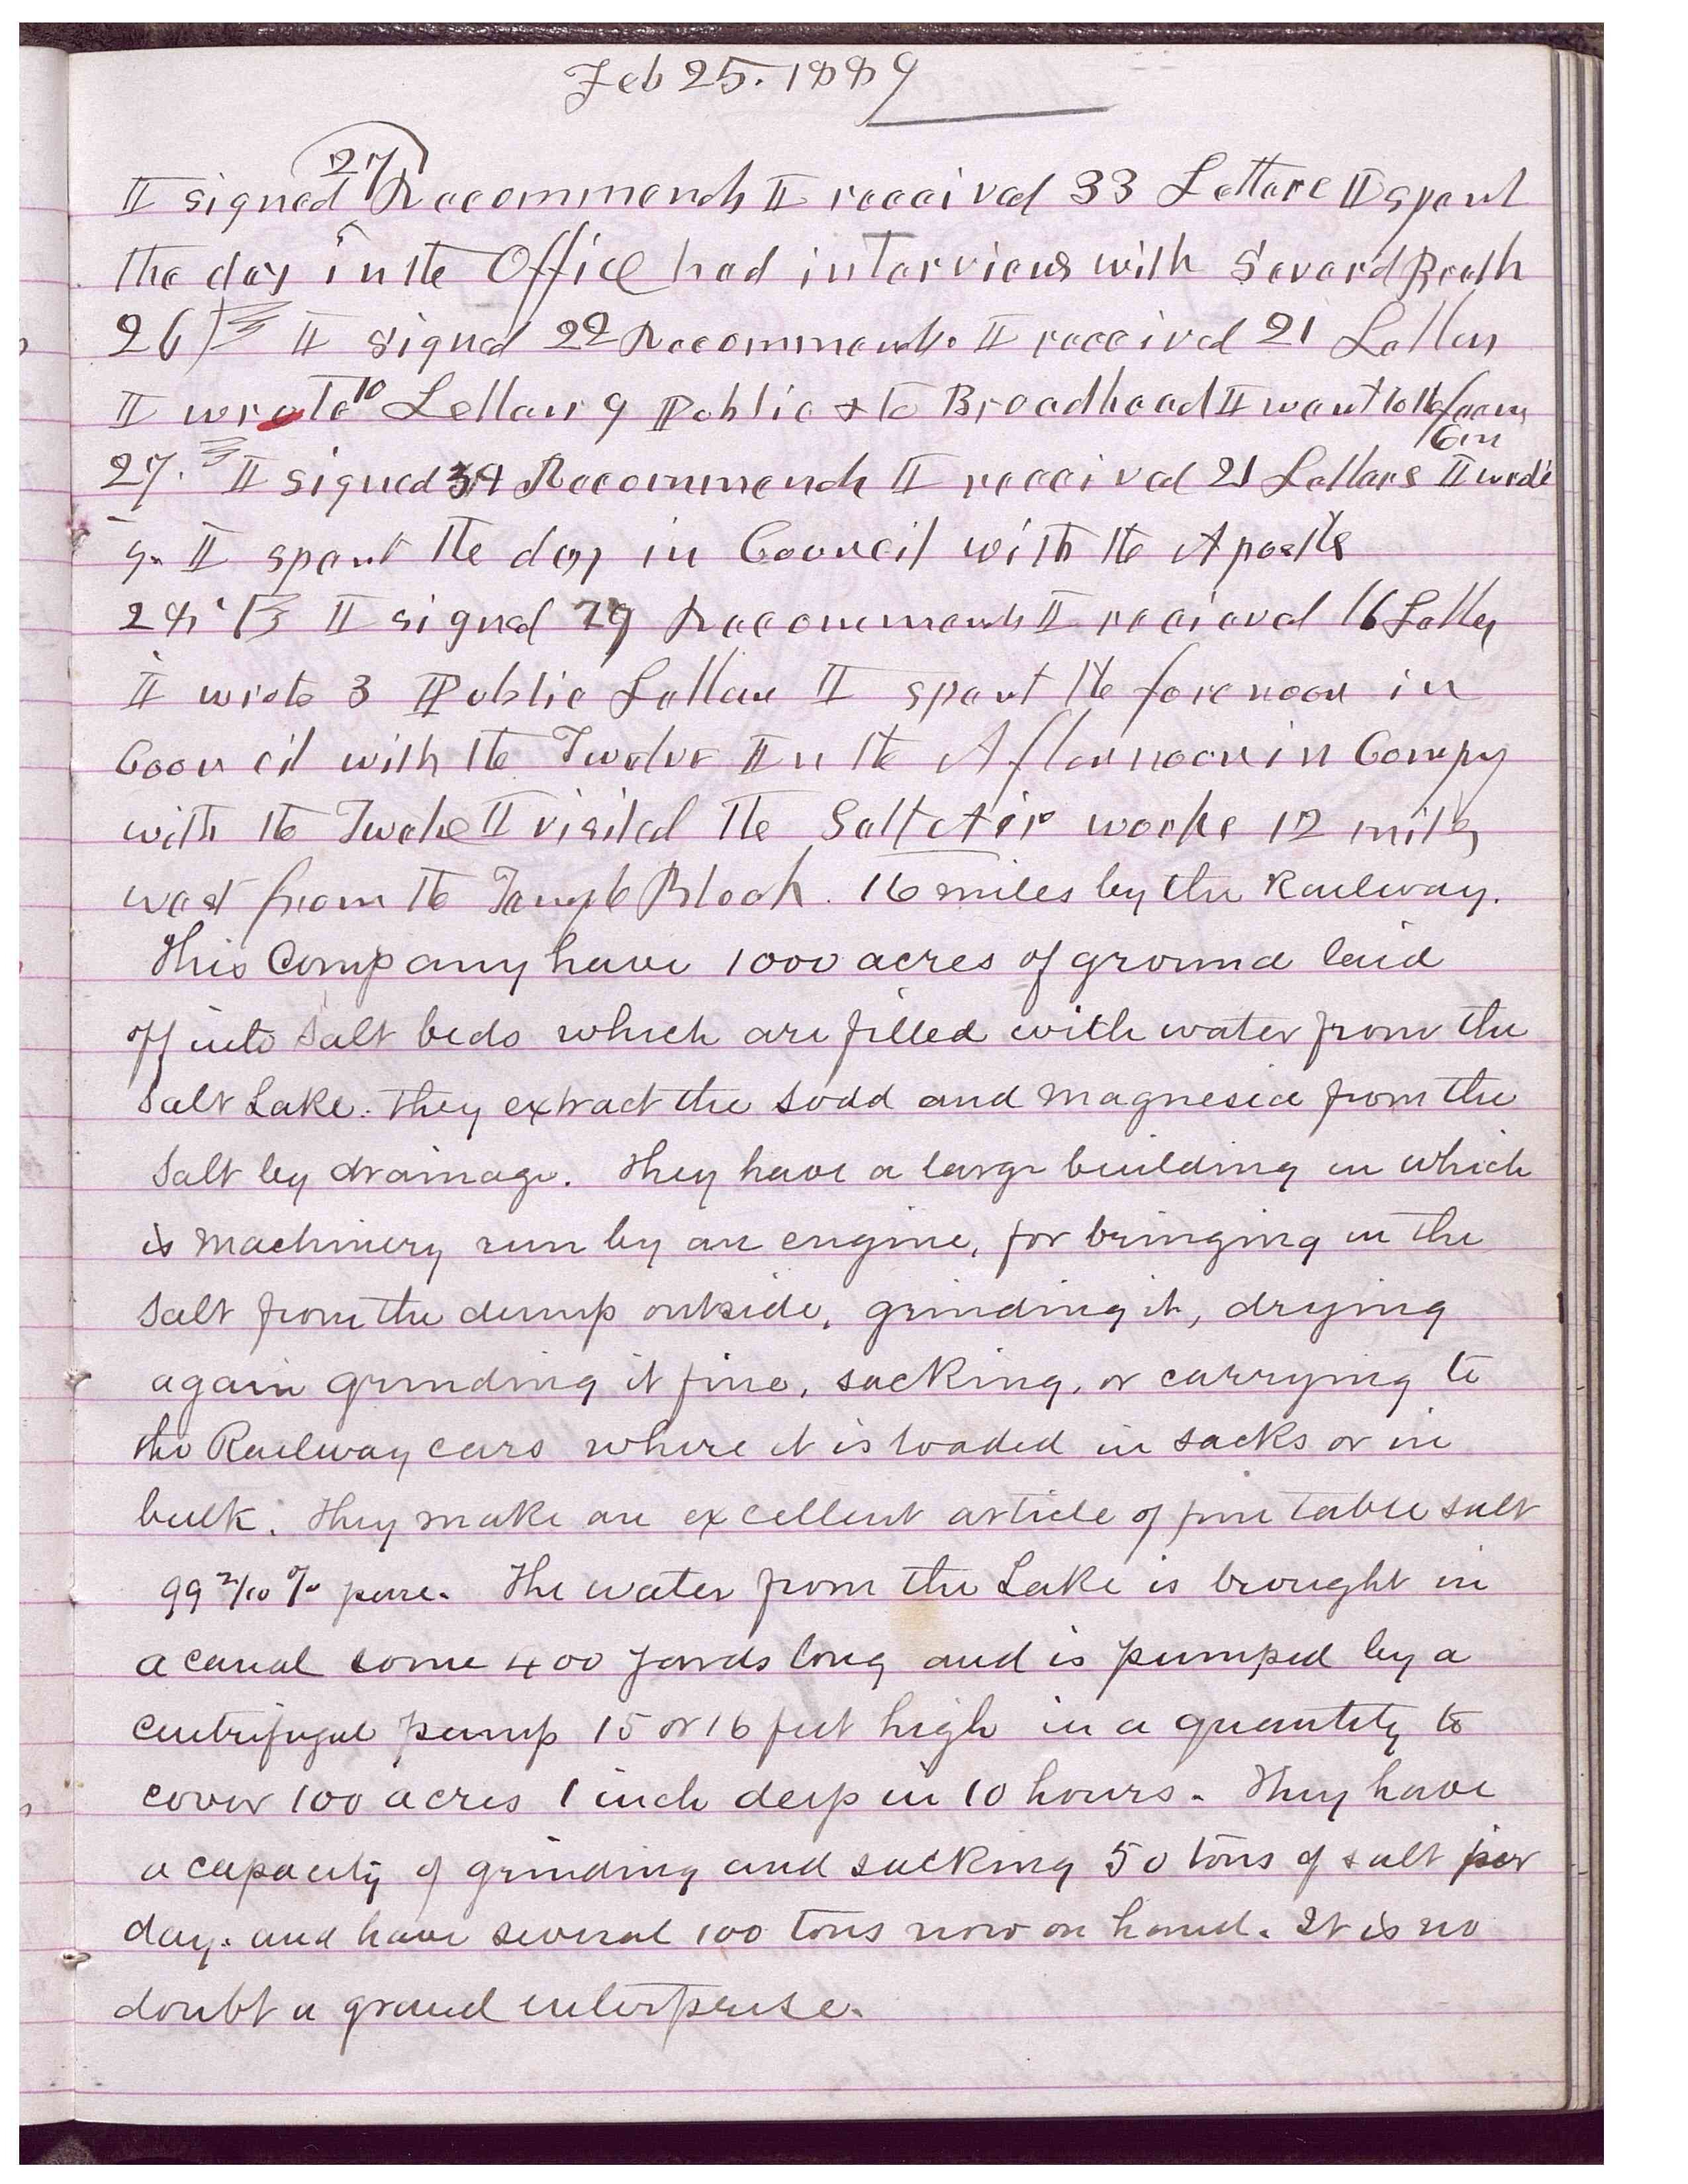 Feb 25. 1889
27
I signed Recommends I received 33 Letters I spent
the day in the Office had interviews with Several Breth
26 I signed 22 Recommends. I received 21 Letters
I wrote 10 Letters 9 Public & to Broadhead I went to the farm
27. I signed 34 Recommends I received 21 Letters I wrote
9. I spent the day in Council with the Apostls
28 I signed 29 Recommends I recieved 16 Letters
I wrote 3 Public Letters I spent the forenoon in
Council with the Twelve In the Afternoon in Compny
with the Twelve I visited the Salt Air works 12 miles
west from the Temple Block. 16 miles by the Railway.
This Company have 1000 acres of ground laid
off into Salt beds which are filled with water from the
Salt Lake. They extract the soda and magnesia from the
Salt by drainage. They have a large building in which
is machinery run by an engine, for bringing in the
Salt from the dump outside, grinding it, drying
again grinding it fine, sacking, or carrying to
the Railway cars where it is loaded in sacks or in
bulk. They make an excellent article of fine table salt
99 2/10 % pure. The water from the Lake is brought in
a canal some 400 yards long and is pumped by a
centrifugal pump 15 or 16 feet high in a quantity to
cover 100 acres 1 inch deep in 10 hours. They have
a capacity of grinding and sacking 50 tons of salt per
day. and have several 100 tons now on hand. It is no
doubt a grand enterprise.